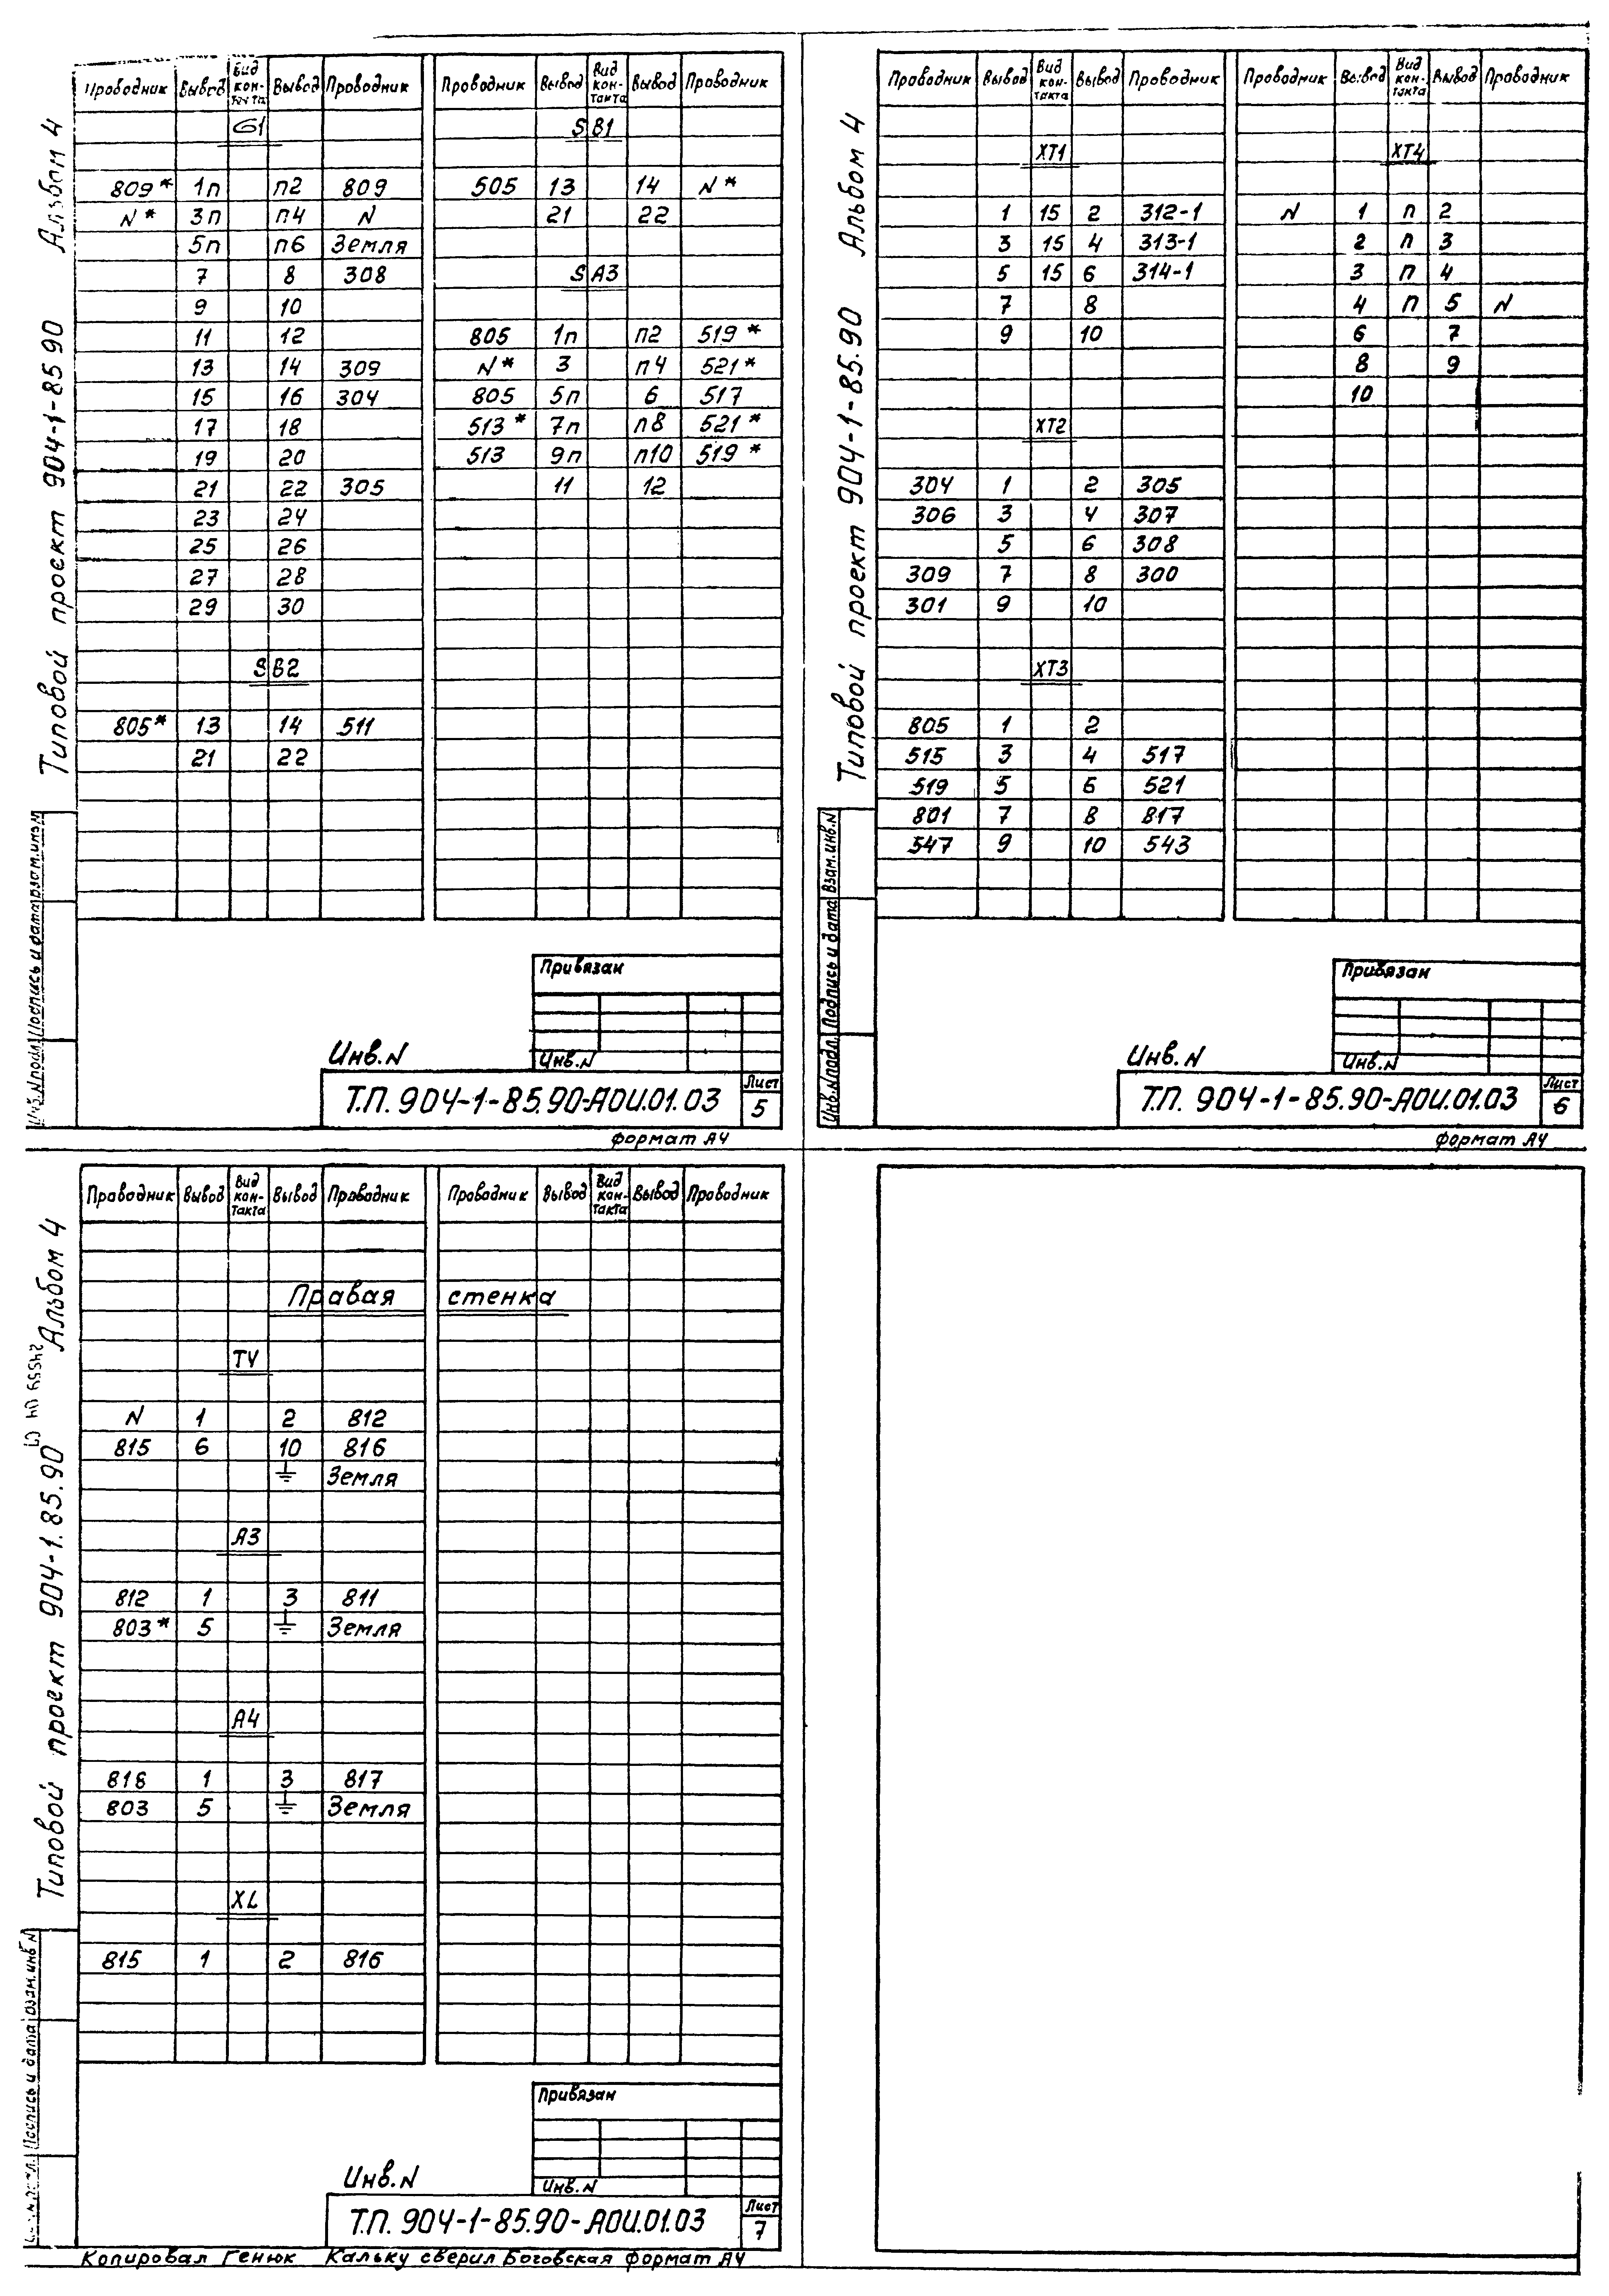 Альбом 4
Типовой проект 904-1-85 90
Проводник Вывод Вид кон-такта Вывод Проводник Проводник Вывод Вид кон-такта Вывод Проводник
G1 SB1
809* 1п п2 809 505 13 14 N*
N* 3п п4 N 21 22
5п п6 Земля
7 8 308 SA3
9 10
11 12 805 1п п2 519*
13 14 309 N* 3 п4 521*
15 16 304 805 5п 6 517
17 18 513* 7п п8 521*
19 20 513 9п п10 519*
21 22 305 11 12
23 24
25 26
27 28
29 30
SB2
805* 13 14 511
21 22
Привязан
Инв.N
Инв.N
Т.П. 904-1-85.90-АОИ.01.03
Лист
5
формат А4
Альбом 4
Типовой проект 904-1-85.90
Проводник Вывод Вид кон-такта Вывод Проводник Проводник Вывод Вид кон-такта Вывод Проводник
XT1 XT4
1 15 2 312-1 N 1 п 2
3 15 4 313-1 2 п 3
5 15 6 314-1 3 п 4
7 8 4 п 5 N
9 10 6 7
8 9
10
XT2
304 1 2 305
306 3 4 307
5 6 308
309 7 8 300
301 9 10
XT3
805 1 2
515 3 4 517
519 5 6 521
801 7 8 817
547 9 10 543
Инв.N подл. Подпись и дата Взам.инв.N
Привязан
Инв.N
Инв.N
Т.П. 904-1-85.90-АОИ.01.03
Лист
6
формат А4
Альбом 4
Типовой проект 904-1.85.90
Проводник Вывод Вид кон-такта Вывод Проводник Проводник Вывод Вид кон-такта Вывод Проводник
Правая стенка
TV
N 1 2 812
815 6 10 816
⏚ Земля
A3
812 1 3 811
803* 5 ⏚ Земля
A4
816 1 3 817
803 5 ⏚ Земля
XL
815 1 2 816
Привязан
Инв.N
Инв.N
Т.П. 904-1-85.90-АОИ.01.03
Лист
7
Копировал Генюк Кальку сверил Боговская формат А4